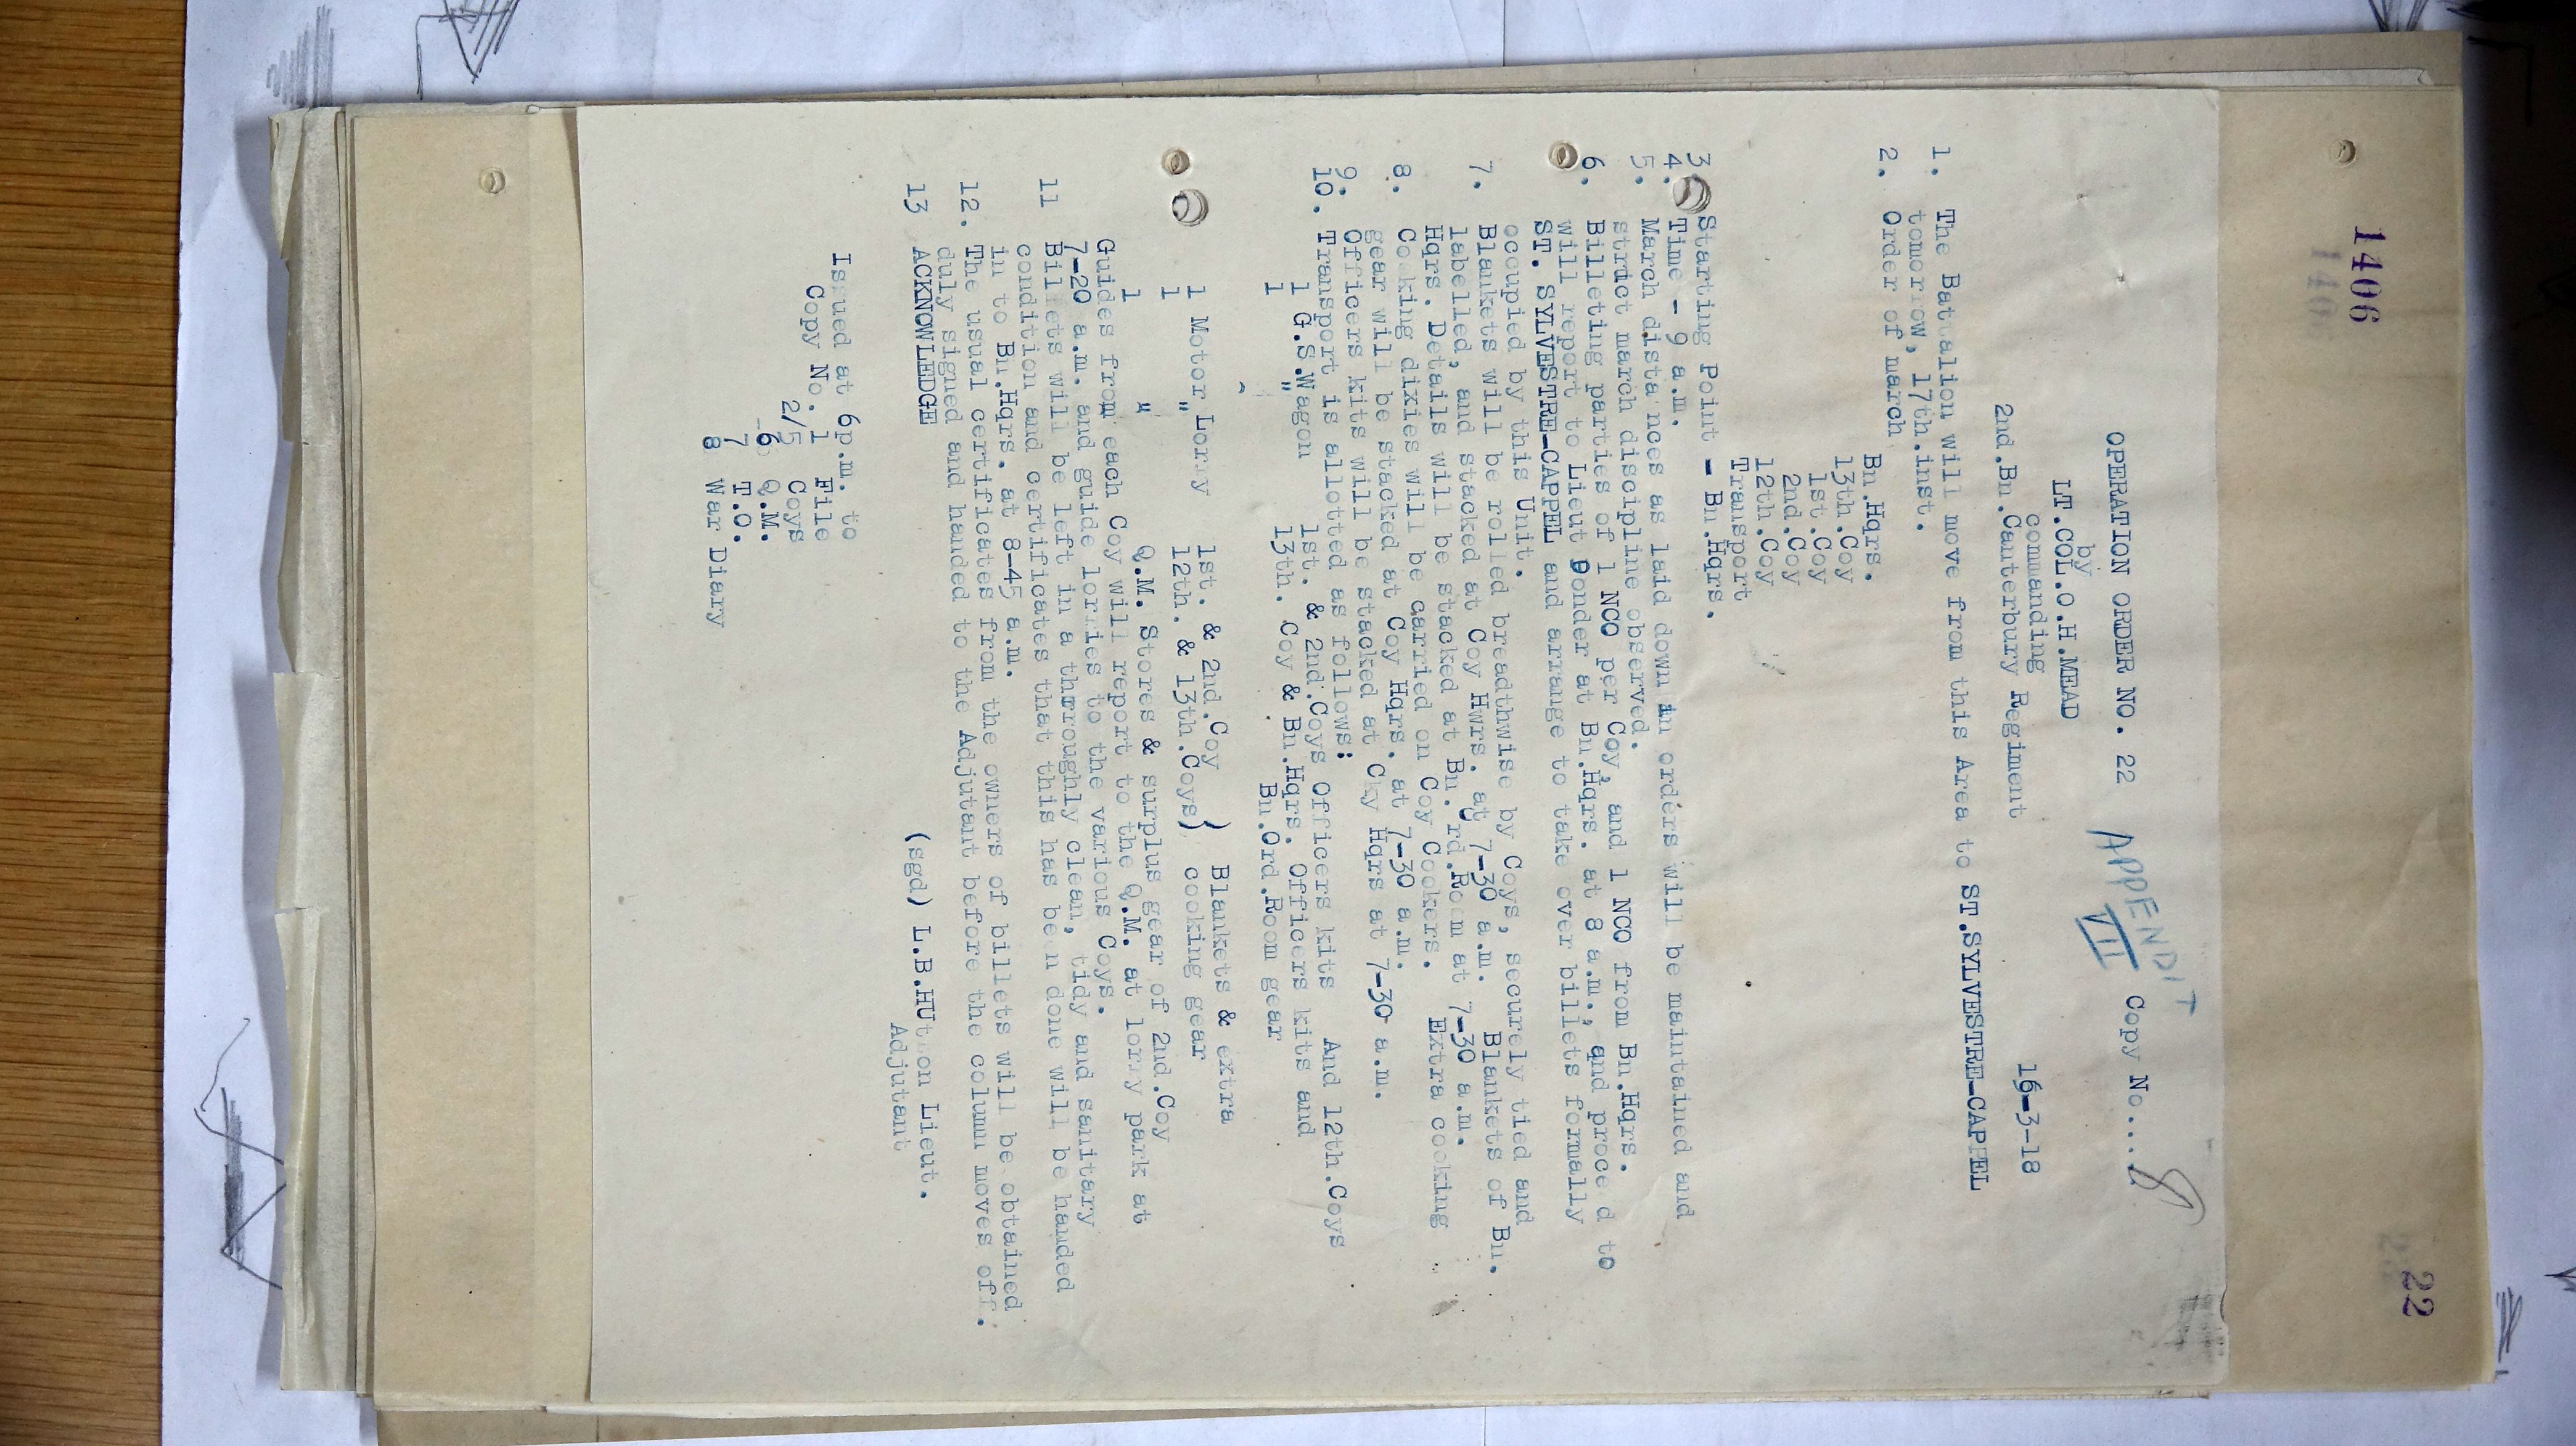 1406
1406
22
22
OPERATION ORDER NO. 22 APPENDIT VII Copy No....8
by
LT.COL.O.H.MEAD
commanding
2nd.Bn.Canterbury Regiment 16-3-18
1. The Battalion will move from this Area to ST.SYLVESTRE-CAPPEL
tomorrow, 17th.inst.
2. Order of march
Bn.Hqrs.
13th.Coy
1st.Coy
2nd.Coy
12th.Coy
Transport
3. Starting Point - Bn.Hqrs.
4. Time - 9 a.m.
5. March distances as laid down in orders will be maintained and
strict march discipline observed.
6. Billeting parties of 1 NCO per Coy, and 1 NCO from Bn.Hqrs.
will report to Lieut Ponder at Bn.Hqrs. at 8 a.m., and proceed to
ST. SYLVESTRE-CAPPEL and arrange to take over billets formally
occupied by this Unit.
7. Blankets will be rolled breadthwise by Coys, securely tied and
labelled, and stacked at Coy Hwrs. at 7-30 a.m. Blankets of Bn.
Hqrs. Details will be stacked at Bn. rd.Room at 7-30 a.m.
8. Cooking dixies will be carried on Coy Cookers. Extra cooking
gear will be stacked at Coy Hqrs. at 7-30 a.m.
9. Officers kits will be stacked at Cky Hqrs at 7-30 a.m.
10. Transport is allotted as follows:
1 G.S.Wagon 1st. & 2nd.Coys Officers kits And 12th.Coys
1 " 13th. Coy & Bn.Hqrs. Officers kits and
Bn.Ord.Room gear
1 Motor Lorry 1st. & 2nd.Coy } Blankets & extra
1 " 12th. & 13th.Coys) cooking gear
1 " Q.M. Stores & surplus gear of 2nd.Coy
Guides from each Coy will report to the Q.M. at lorry park at
7-20 a.m. and guide lorries to the various Coys.
11 Billets will be left in a thrroughly clean, tidy and sanitary
condition and certificates that this has been done will be handed
in to Bn.Hqrs. at 8-45 a.m.
12. The usual certificates from the owners of billets will be obtained
duly signed and handed to the Adjutant before the column moves off.
13 ACKNOWLEDGE
(sgd) L.B.HUtson Lieut.
Adjutant
Issued at 6p.m. to
Copy No. 1 File
2/5 Coys
6 Q.M.
7 T.O.
8 War Diary